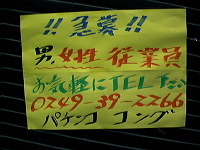 !! 急募 !!
男.女性 従業員
お気軽にTEL下さい
0249-39-2266
パケンコ コング